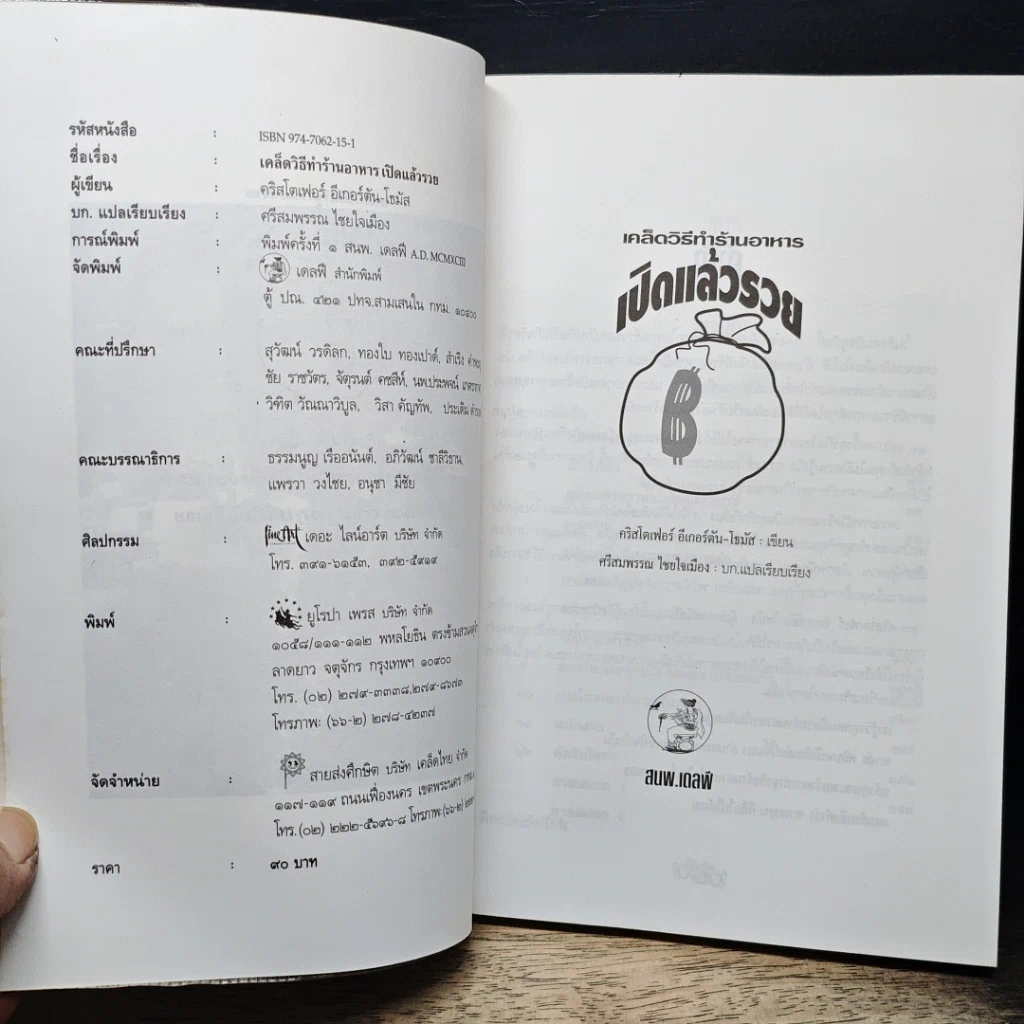 รหัสหนังสือ : ISBN 974-7062-15-1
ชื่อเรื่อง : เคล็ดวิธีทำร้านอาหาร เปิดแล้วรวย
ผู้เขียน : คริสโตเฟอร์ อีเกอร์ตัน-โธมัส
บก. แปลเรียบเรียง : ศรีสมพรรณ ไชยใจเมือง
การณ์พิมพ์ : พิมพ์ครั้งที่ ๑ สนพ. เดลฟี A.D. MCMXCIII
จัดพิมพ์ : เดลฟี สำนักพิมพ์
ตู้ ปณ. ๔๒๑ ปทจ.สามเสนใน กทม. ๑๐๔๐๐
คณะที่ปรึกษา : สุวัฒน์ วรดิลก, ทองใบ ทองเปาด์, สำเริง
ชัย ราชวัตร, จัตุรนต์ คชสีห์, นพ.ประพจน์
วิฑิต วัณณาวิบูล, วิสา คัญทัพ, ประเดิม
คณะบรรณาธิการ : ธรรมนูญ เรืออนันต์, อภิวัฒน์ ชาลีวิธาน,
แพรวา วงไชย, อนุชา มีชัย
ศิลปกรรม : Line Art เดอะ ไลน์อาร์ต บริษัท จำกัด
โทร. ๓๙๑-๖๑๕๓, ๓๙๒-๕๙๑๙
พิมพ์ : ยูโรปา เพรส บริษัท จำกัด
๑๐๕๘/๑๑๑-๑๑๒ พหลโยธิน ตรงข้ามสวนจตุจักร
ลาดยาว จตุจักร กรุงเทพฯ ๑๐๙๐๐
โทร. (๐๒) ๒๗๙-๓๓๓๘,๒๗๙-๘๖๗๓
โทรภาพ: (๖๖-๒) ๒๗๘-๔๒๓๗
จัดจำหน่าย : สายส่งศึกษิต บริษัท เคล็ดไทย จำกัด
๑๑๗-๑๑๙ ถนนเฟื่องนคร เขตพระนคร กทม.
โทร.(๐๒) ๒๒๒-๕๖๙๖-๘ โทรภาพ:(๖๖-๒)
ราคา : ๙๐ บาท
เคล็ดวิธีทำร้านอาหาร
เปิดแล้วรวย
฿
คริสโตเฟอร์ อีเกอร์ตัน-โธมัส : เขียน
ศรีสมพรรณ ไชยใจเมือง : บก.แปลเรียบเรียง
สนพ.เดลฟี